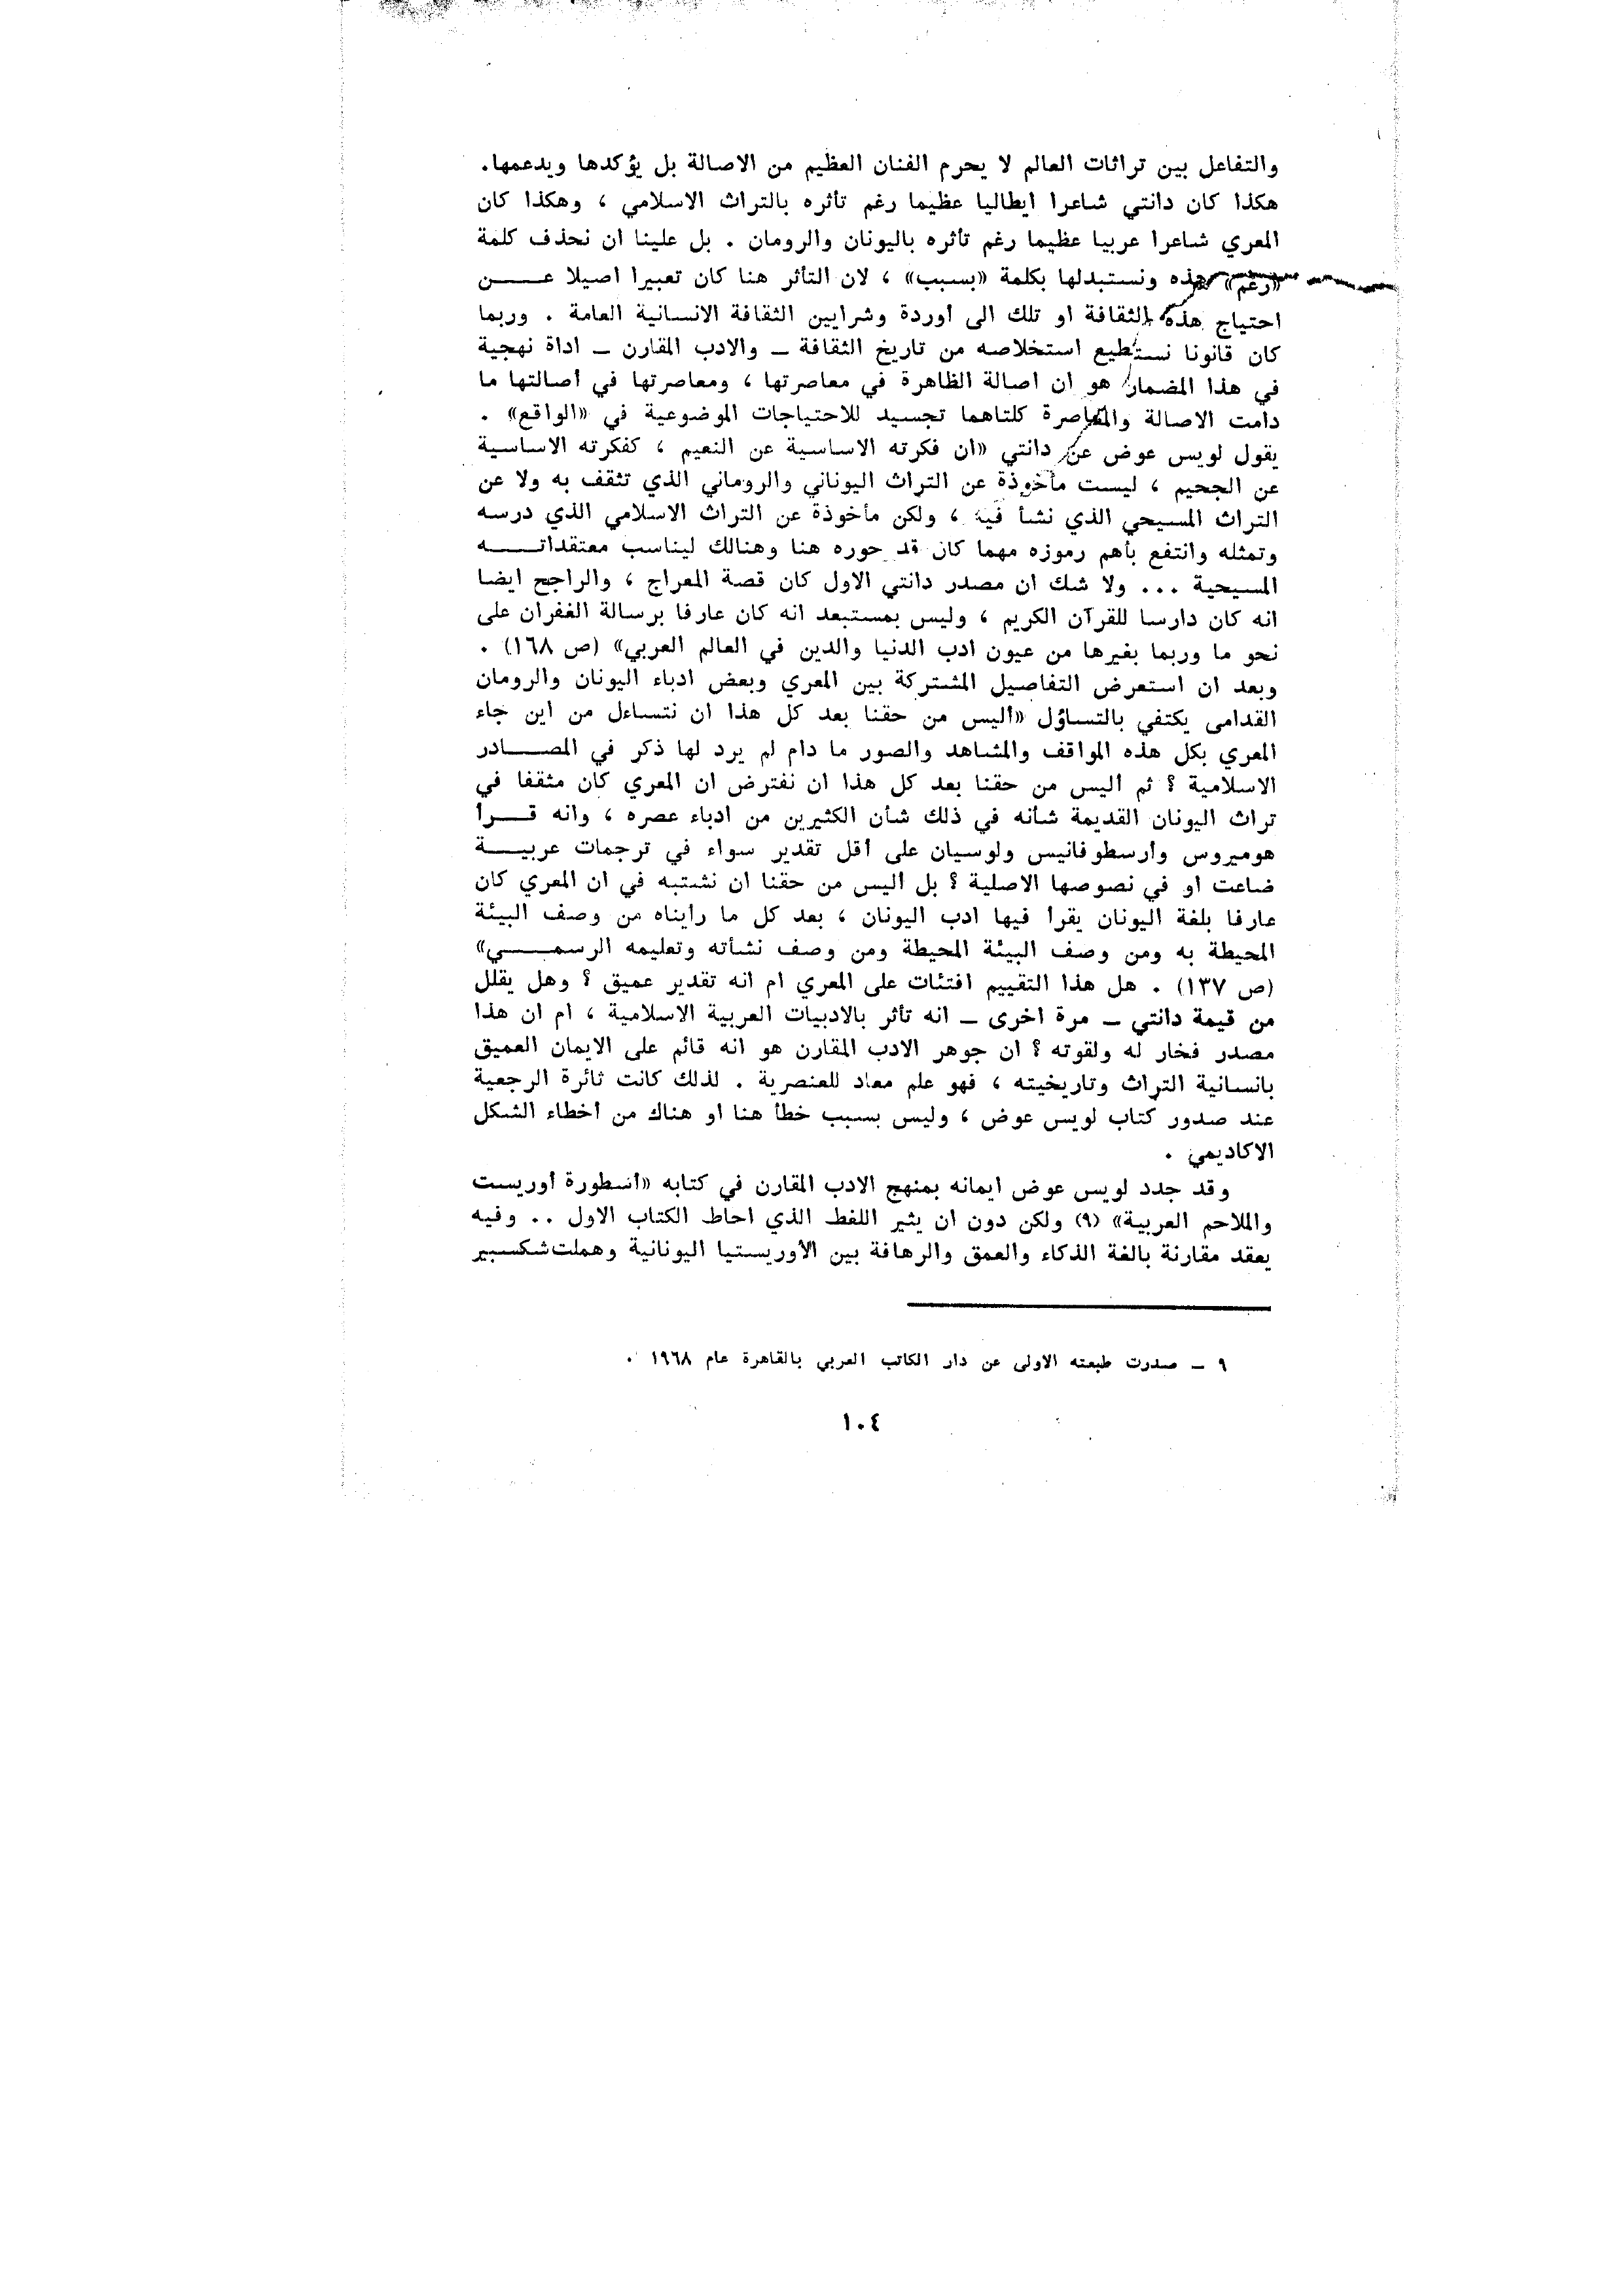 والتفاعل بين تراثات العالم لا يحرم الفنان العظيم من الاصالة بل يؤكدها ويدعمها.
هكذا كان دانتي شاعرا ايطاليا عظيما رغم تأثره بالتراث الاسلامي ، وهكذا كان
المعري شاعرا عربيا عظيما رغم تأثره باليونان والرومان . بل علينا ان نحذف كلمة
«رغم» هذه ونستبدلها بكلمة «بسبب» ، لان التأثر هنا كان تعبيرا اصيلا عـــــن
احتياج هذه الثقافة او تلك الى أوردة وشرايين الثقافة الانسانية العامة . وربما
كان قانونا نستطيع استخلاصه من تاريخ الثقافة – والادب المقارن – اداة نهجية
في هذا المضمار هو ان اصالة الظاهرة في معاصرتها ، ومعاصرتها في أصالتها ما
دامت الاصالة والمعاصرة كلتاهما تجسيد للاحتياجات الموضوعية في «الواقع» .
يقول لويس عوض عن دانتي «ان فكرته الاساسية عن النعيم ، كفكرته الاساسية
عن الجحيم ، ليست مأخوذة عن التراث اليوناني والروماني الذي تثقف به ولا عن
التراث المسيحي الذي نشأ فيه ، ولكن مأخوذة عن التراث الاسلامي الذي درسه
وتمثله وانتفع بأهم رموزه مهما كان قد حوره هنا وهنالك ليناسب معتقداتـــــه
المسيحية ... ولا شك ان مصدر دانتي الاول كان قصة المعراج ، والراجح ايضا
انه كان دارسا للقرآن الكريم ، وليس بمستبعد انه كان عارفا برسالة الغفران على
نحو ما وربما بغيرها من عيون ادب الدنيا والدين في العالم العربي» (ص ١٦٨) .
وبعد ان استعرض التفاصيل المشتركة بين المعري وبعض ادباء اليونان والرومان
القدامى يكتفي بالتساؤل «أليس من حقنا بعد كل هذا ان نتساءل من اين جاء
المعري بكل هذه المواقف والمشاهد والصور ما دام لم يرد لها ذكر في المصـــادر
الاسلامية ؟ ثم أليس من حقنا بعد كل هذا ان نفترض ان المعري كان مثقفا في
تراث اليونان القديمة شأنه في ذلك شأن الكثيرين من ادباء عصره ، وانه قـــرأ
هوميروس وأرسطوفانيس ولوسيان على أقل تقدير سواء في ترجمات عربيـــة
ضاعت او في نصوصها الاصلية ؟ بل أليس من حقنا ان نشتبه في ان المعري كان
عارفا بلغة اليونان يقرأ فيها ادب اليونان ، بعد كل ما رأيناه من وصف البيئة
المحيطة به ومن وصف البيئة المحيطة ومن وصف نشأته وتعليمه الرسمـــــي»
(ص ١٣٧) . هل هذا التقييم افتئات على المعري ام انه تقدير عميق ؟ وهل يقلل
من قيمة دانتي – مرة اخرى – انه تأثر بالادبيات العربية الاسلامية ، ام ان هذا
مصدر فخار له ولقوته ؟ ان جوهر الادب المقارن هو انه قائم على الايمان العميق
بانسانية التراث وتاريخيته ، فهو علم معاد للعنصرية . لذلك كانت ثائرة الرجعية
عند صدور كتاب لويس عوض ، وليس بسبب خطأ هنا او هناك من أخطاء الشكل
الاكاديمي .
وقد جدد لويس عوض ايمانه بمنهج الادب المقارن في كتابه «أسطورة أوريست
والملاحم العربية» (٩) ولكن دون ان يثير اللغط الذي احاط الكتاب الاول .. وفيه
يعقد مقارنة بالغة الذكاء والعمق والرهافة بين الأوريستيا اليونانية وهملت شكسبير
٩ – صدرت طبعته الاولى عن دار الكاتب العربي بالقاهرة عام ١٩٦٨ .
١٠٤